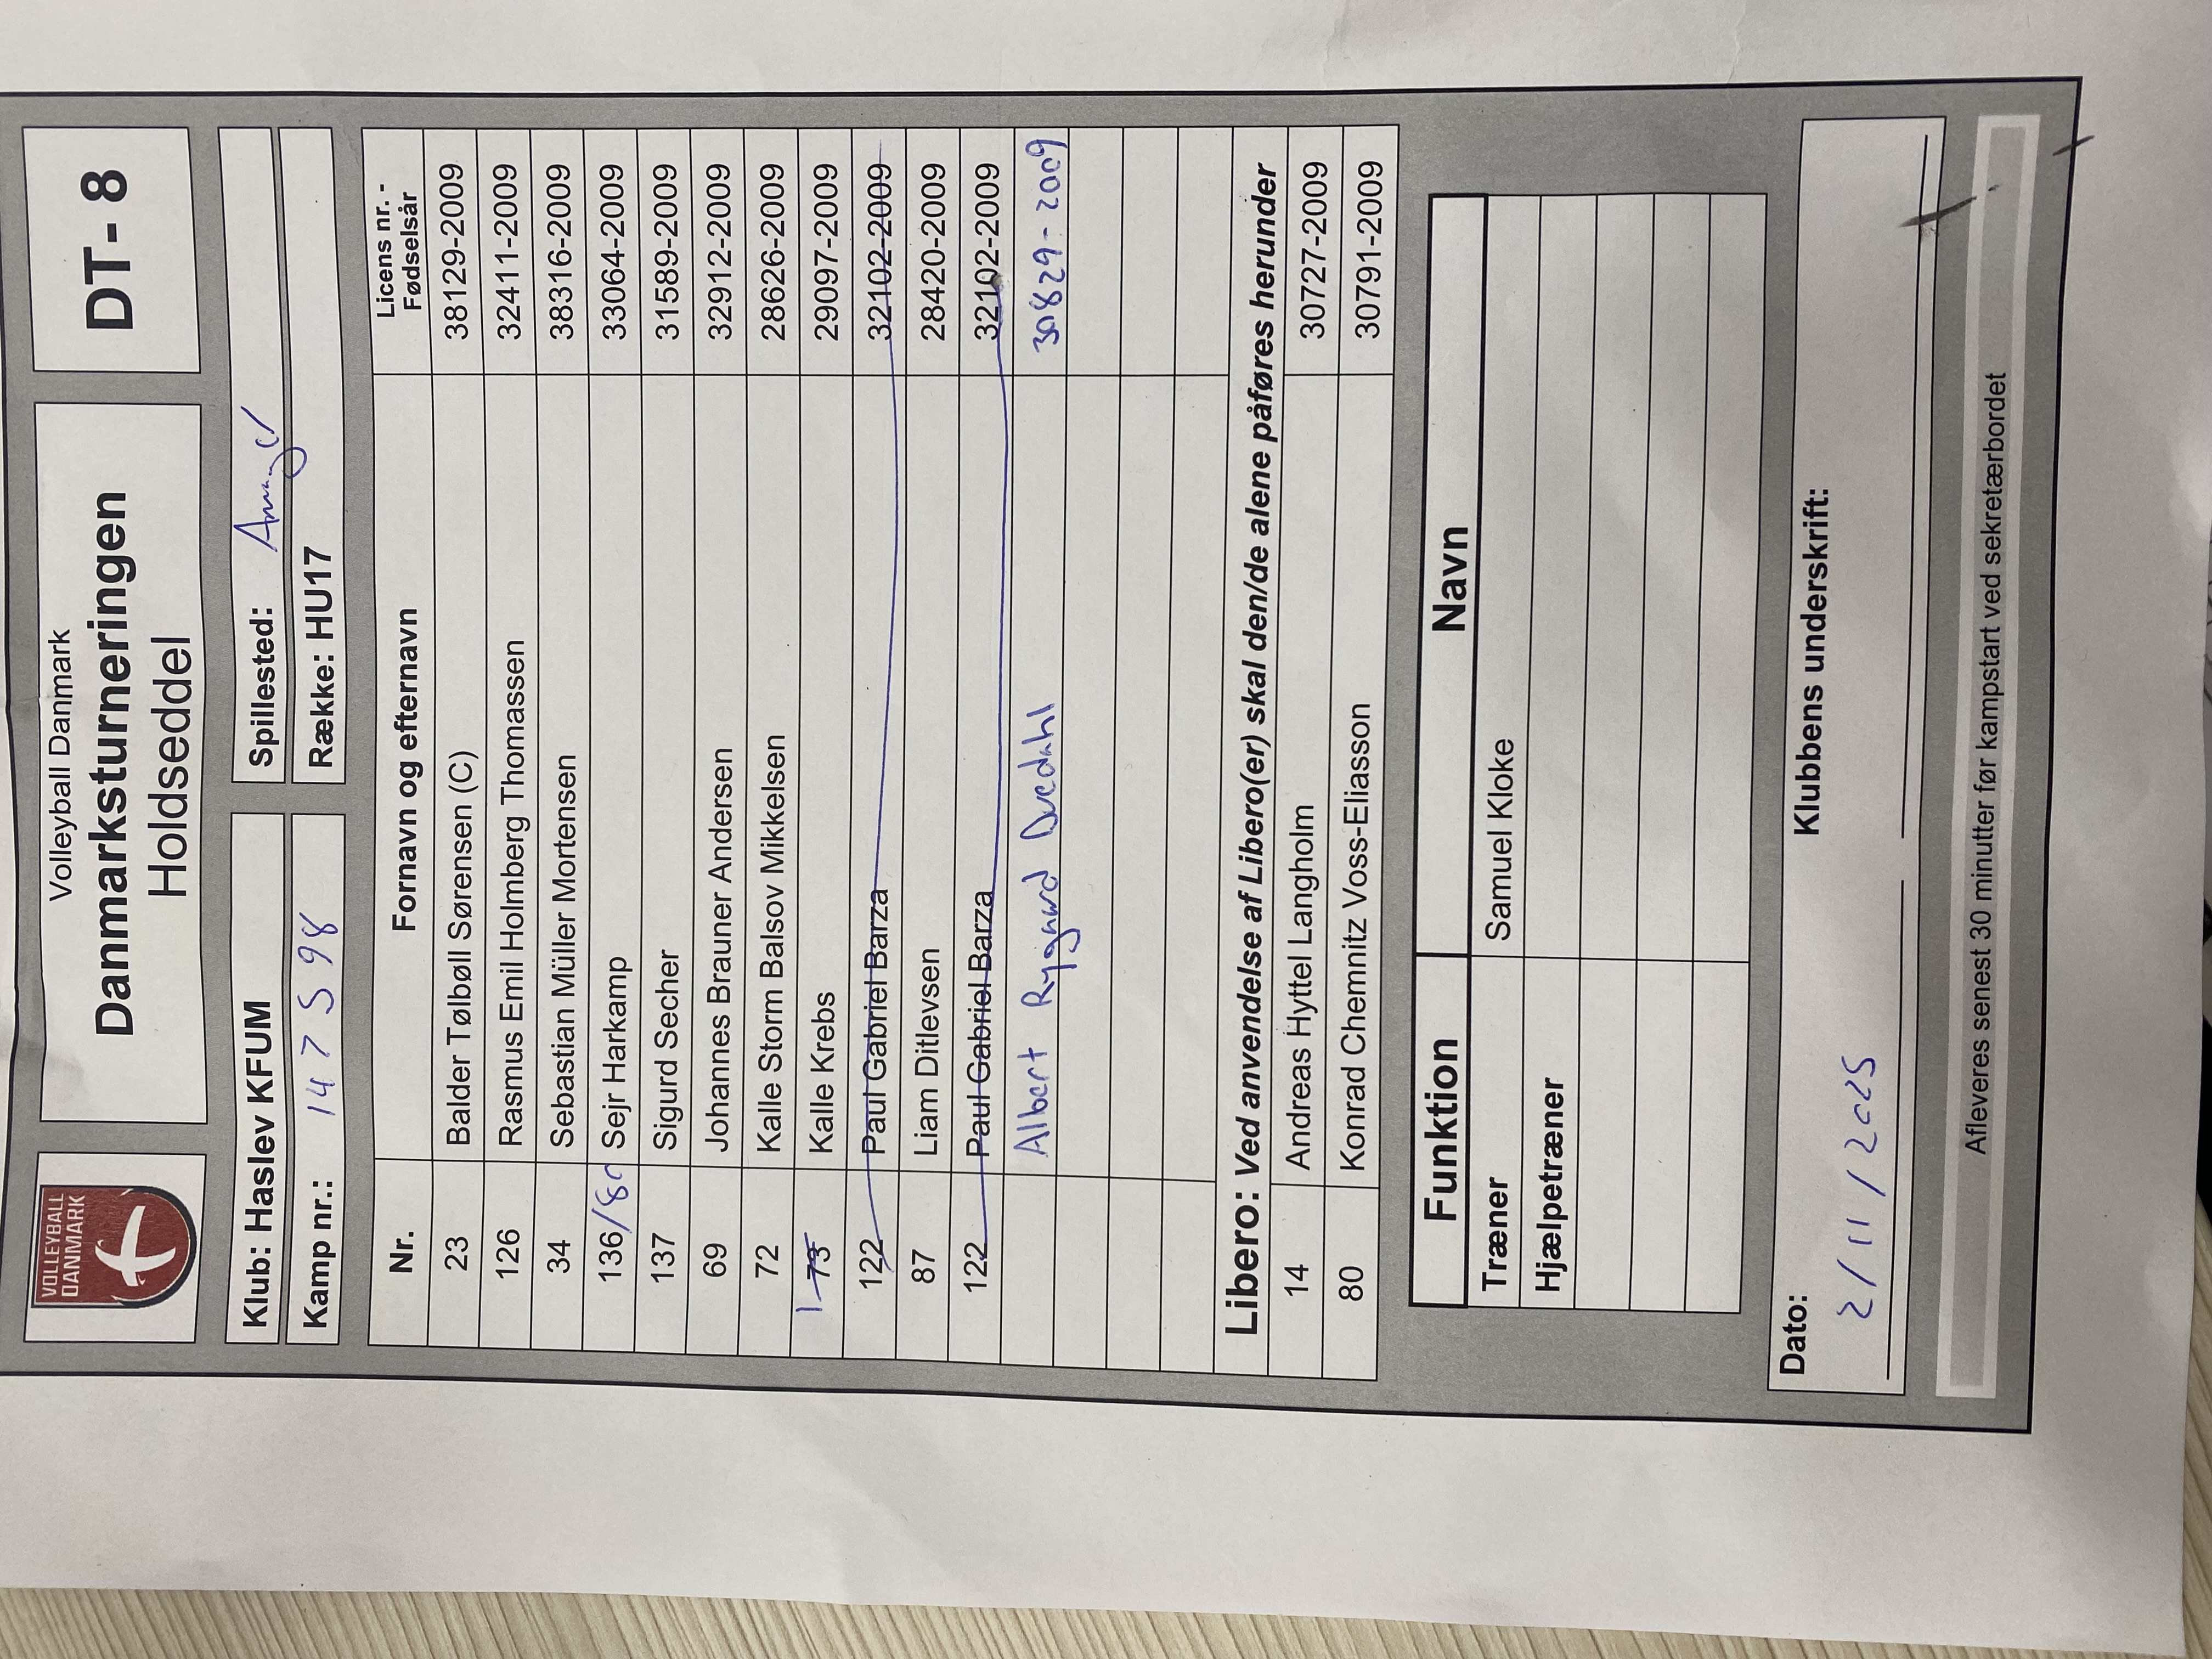 VOLLEYBALL
DANMARK
Volleyball Danmark
Danmarksturneringen
Holdseddel
DT- 8
Klub: Haslev KFUM
Spillested: Amager
Kamp nr.: 147598
Række: HU17
Nr. Fornavn og efternavn Licens nr. - Fødselsår
23 Balder Tølbøll Sørensen (C) 38129-2009
126 Rasmus Emil Holmberg Thomassen 32411-2009
34 Sebastian Müller Mortensen 38316-2009
136/80 Sejr Harkamp 33064-2009
137 Sigurd Secher 31589-2009
69 Johannes Brauner Andersen 32912-2009
72 Kalle Storm Balsov Mikkelsen 28626-2009
1 73 Kalle Krebs 29097-2009
122 Paul Gabriel Barza 32102-2009
87 Liam Ditlevsen 28420-2009
122 Paul Gabriel Barza 32102-2009
Albert Rygaard Duedahl 30829-2009
Libero: Ved anvendelse af Libero(er) skal den/de alene påføres herunder
14 Andreas Hyttel Langholm 30727-2009
80 Konrad Chemnitz Voss-Eliasson 30791-2009
Funktion Navn
Træner Samuel Kloke
Hjælpetræner
Dato: Klubbens underskrift:
2/11/2025
Afleveres senest 30 minutter før kampstart ved sekretærbordet